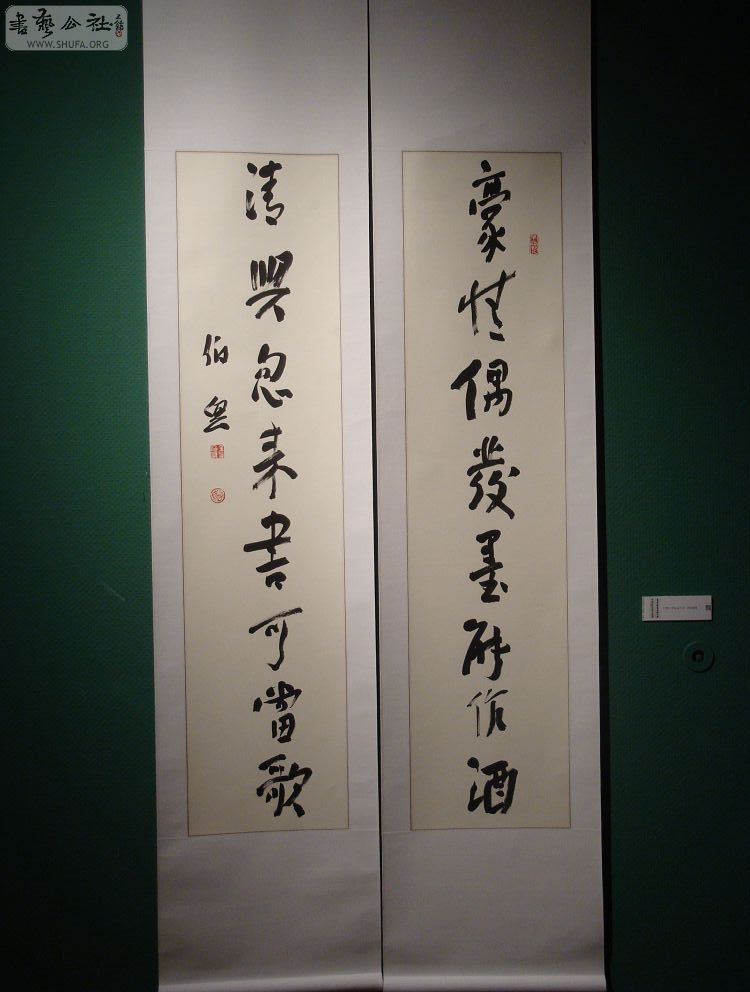 豪情偶發墨能作酒
清興忽来書可當歌
伯翔
書藝公社
WWW.SHUFA.ORG